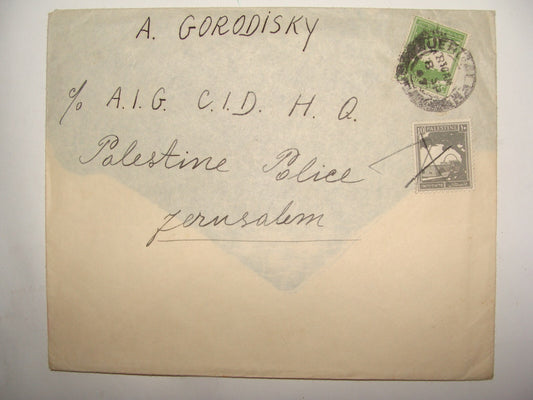 A. GORODISKY
c/o A.I.G. C.I.D. H. Q.
Palestine Police
Jerusalem
PALESTINE